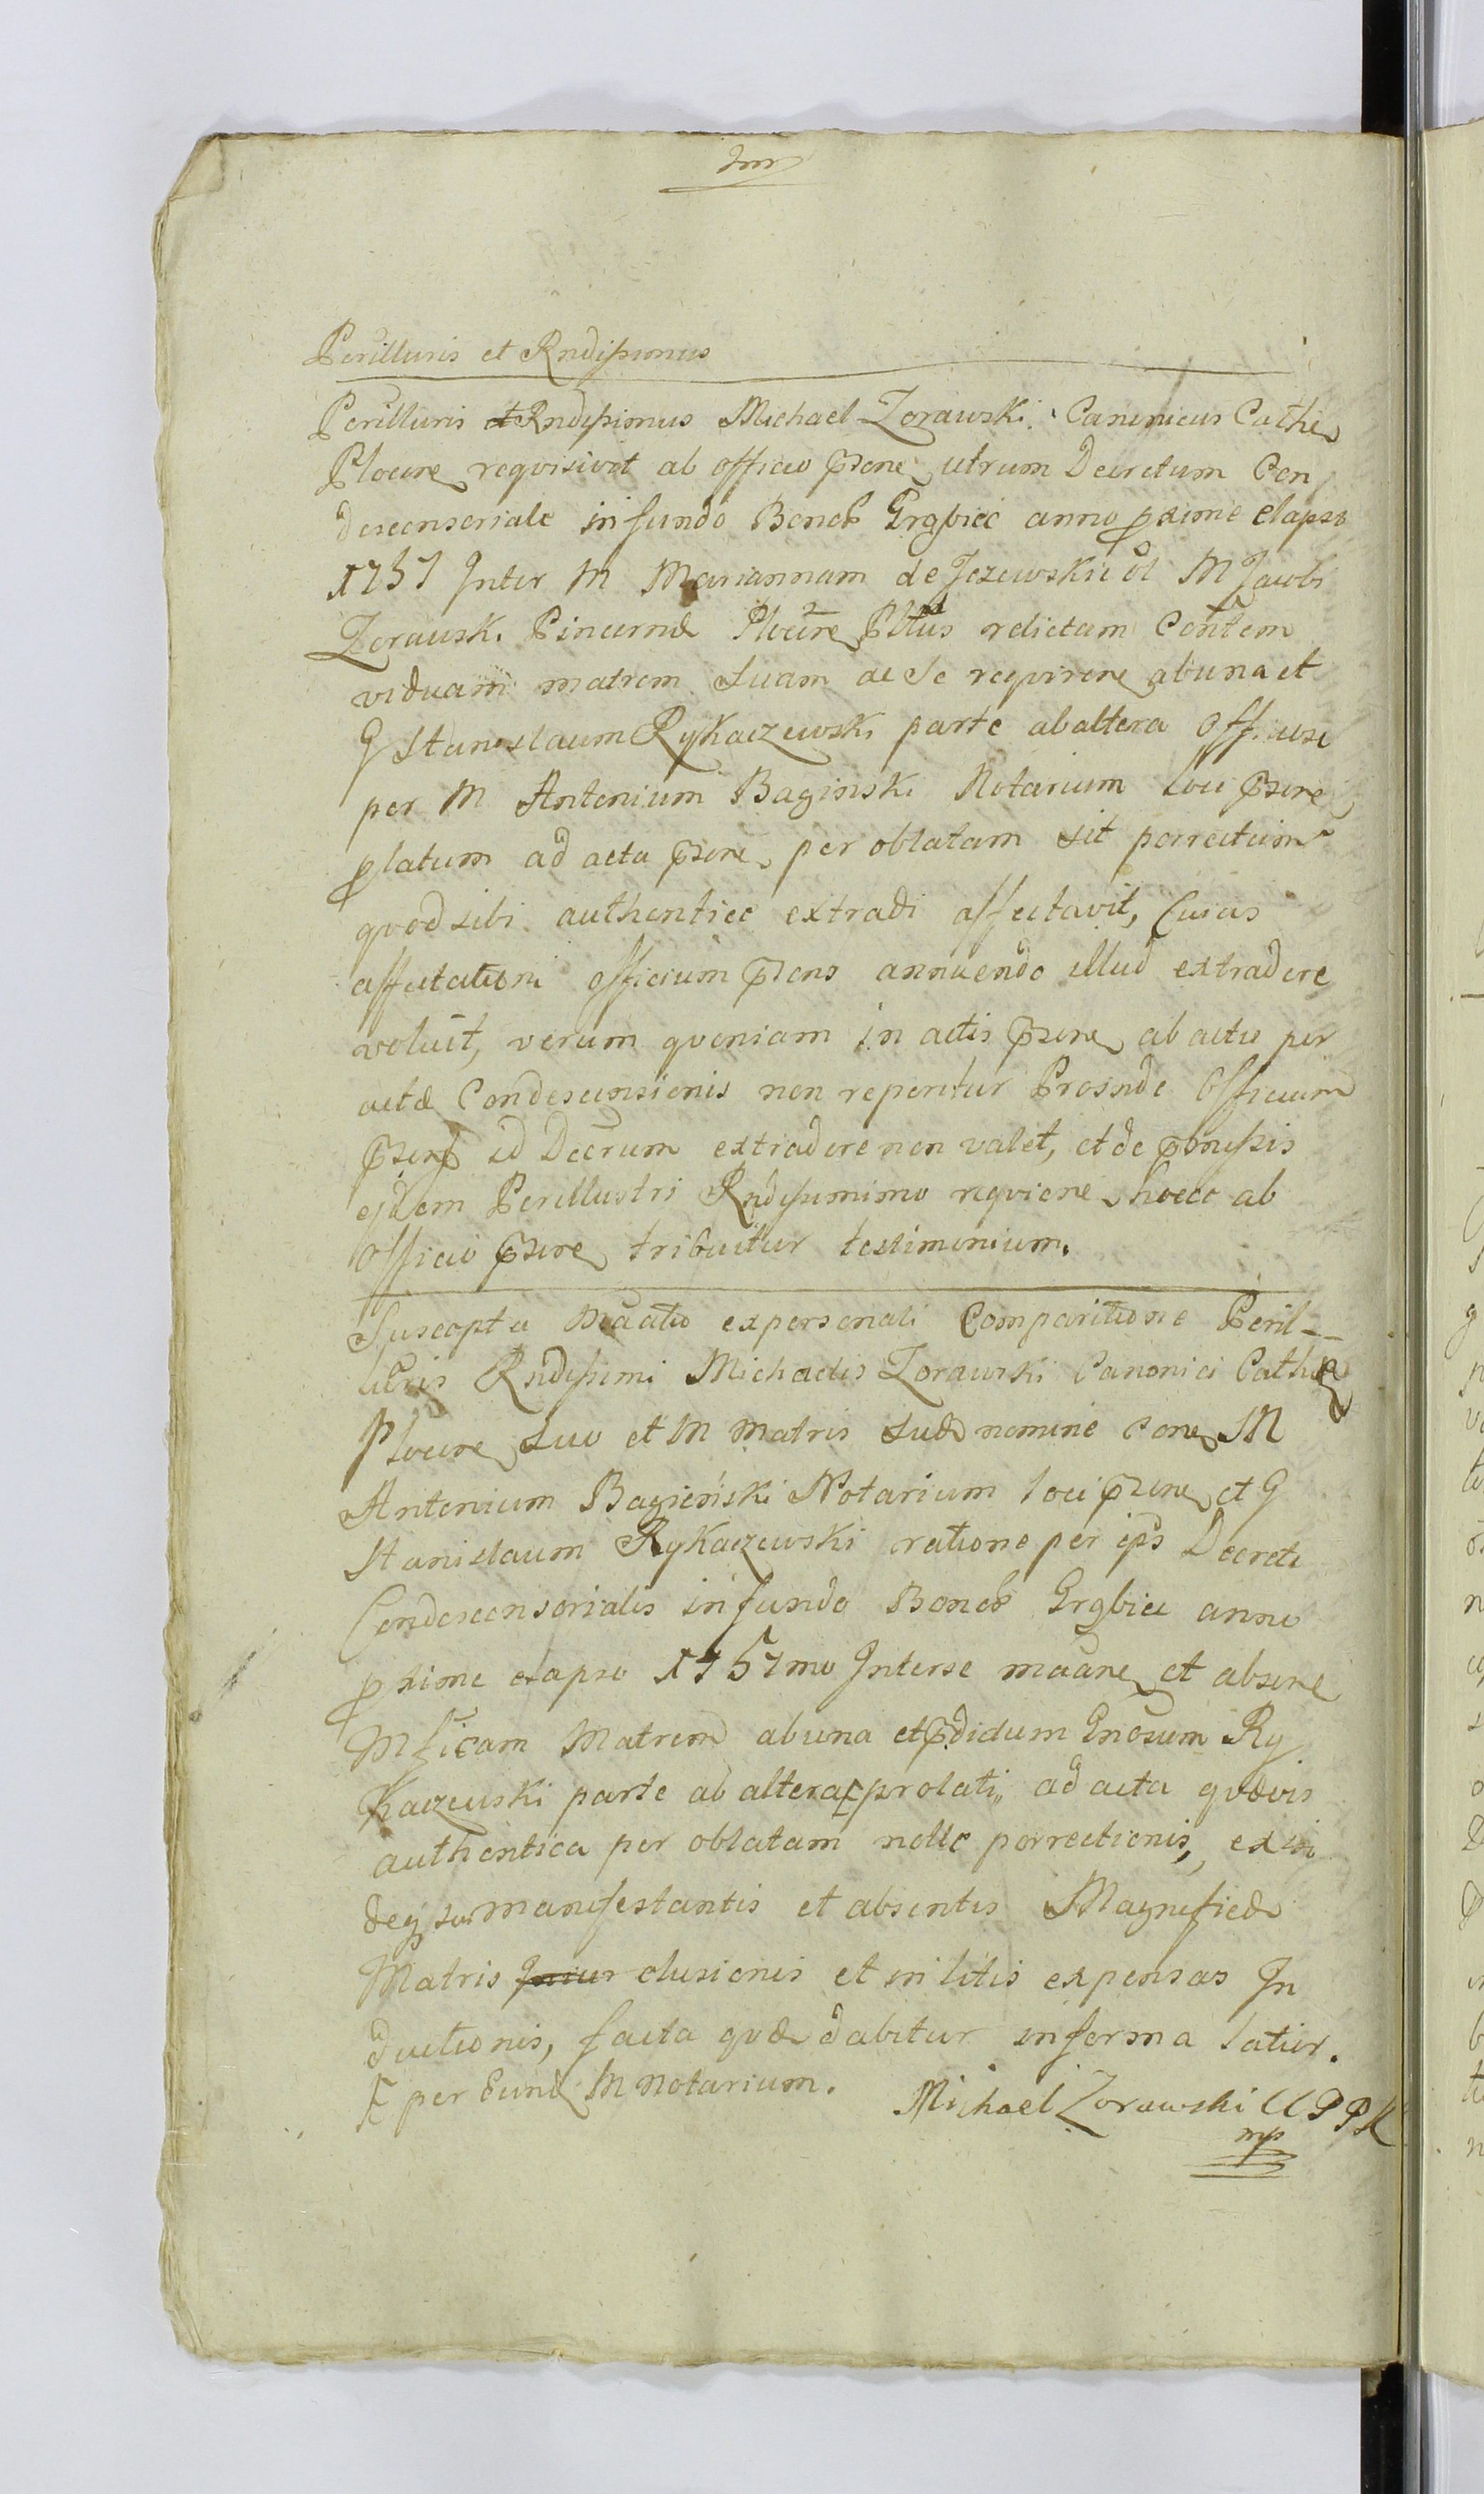 Perilluris et Rndissimus
Perilluris et Rndissimus Michael Zorawski Canonicus Cathe
Plocire reqvisivit ab officio psene utrum Decretum Con
descensoriale in fundo Bonor Grąbiec anno pxime elapso
1757 Inter M Mariannam de Jezewskie ol M Jacobi
Zorawski Pincernæ Plocire relictam Contem
viduam matrem Suam ac Se reqvirene ab una et
G Stanislaum Rykaczewski parte ab altera Officiose
per M Antonium Baginski Notarium loci psene
platum ad acta psene per oblatam sit porrectum
qvod sibi authentice extradi affectavit, Cuius
affectationi officium psens annuendo illud extradere
voluit, verum qvoniam in actis psene ab actu per
actæ Condescensionis non reperitur Proinde Officium
psens id Decrum extradere non valet, et de pmissis
ejdem Perillustri Rndissimimo reqvirene hocce ab
Officio psene tribuitur testimonium.
Suscepta Maatio ex personali Comparitione Peril--
luris Rndissimi Michaelis Zorawski Canonici Cathe
Plocire Suo et M Matris Suæ nomine cone M
Antonium Bagieński Notarium loci psene et G
Stanislaum Rykaczewski ratione per ips Decreti
Condescensorialis in fundo Bonor Grąbiec anno
pxime elapso 1757mo Inter se maane et absene
Mficam Matrem ab una et pdictum Gnosum Ry
Kaczewski parte ab altera prolati ad acta qvævis
authentica per oblatam nolle porrectionis, exvi
deq sui manifestantis et absentis Magnificæ
Matris Iniur elusionis et in litis expensas In
ductionis, facta qvæ dabitur in forma latior.
per Eund M Notarium.
Michael Zorawski CCPPK
mp